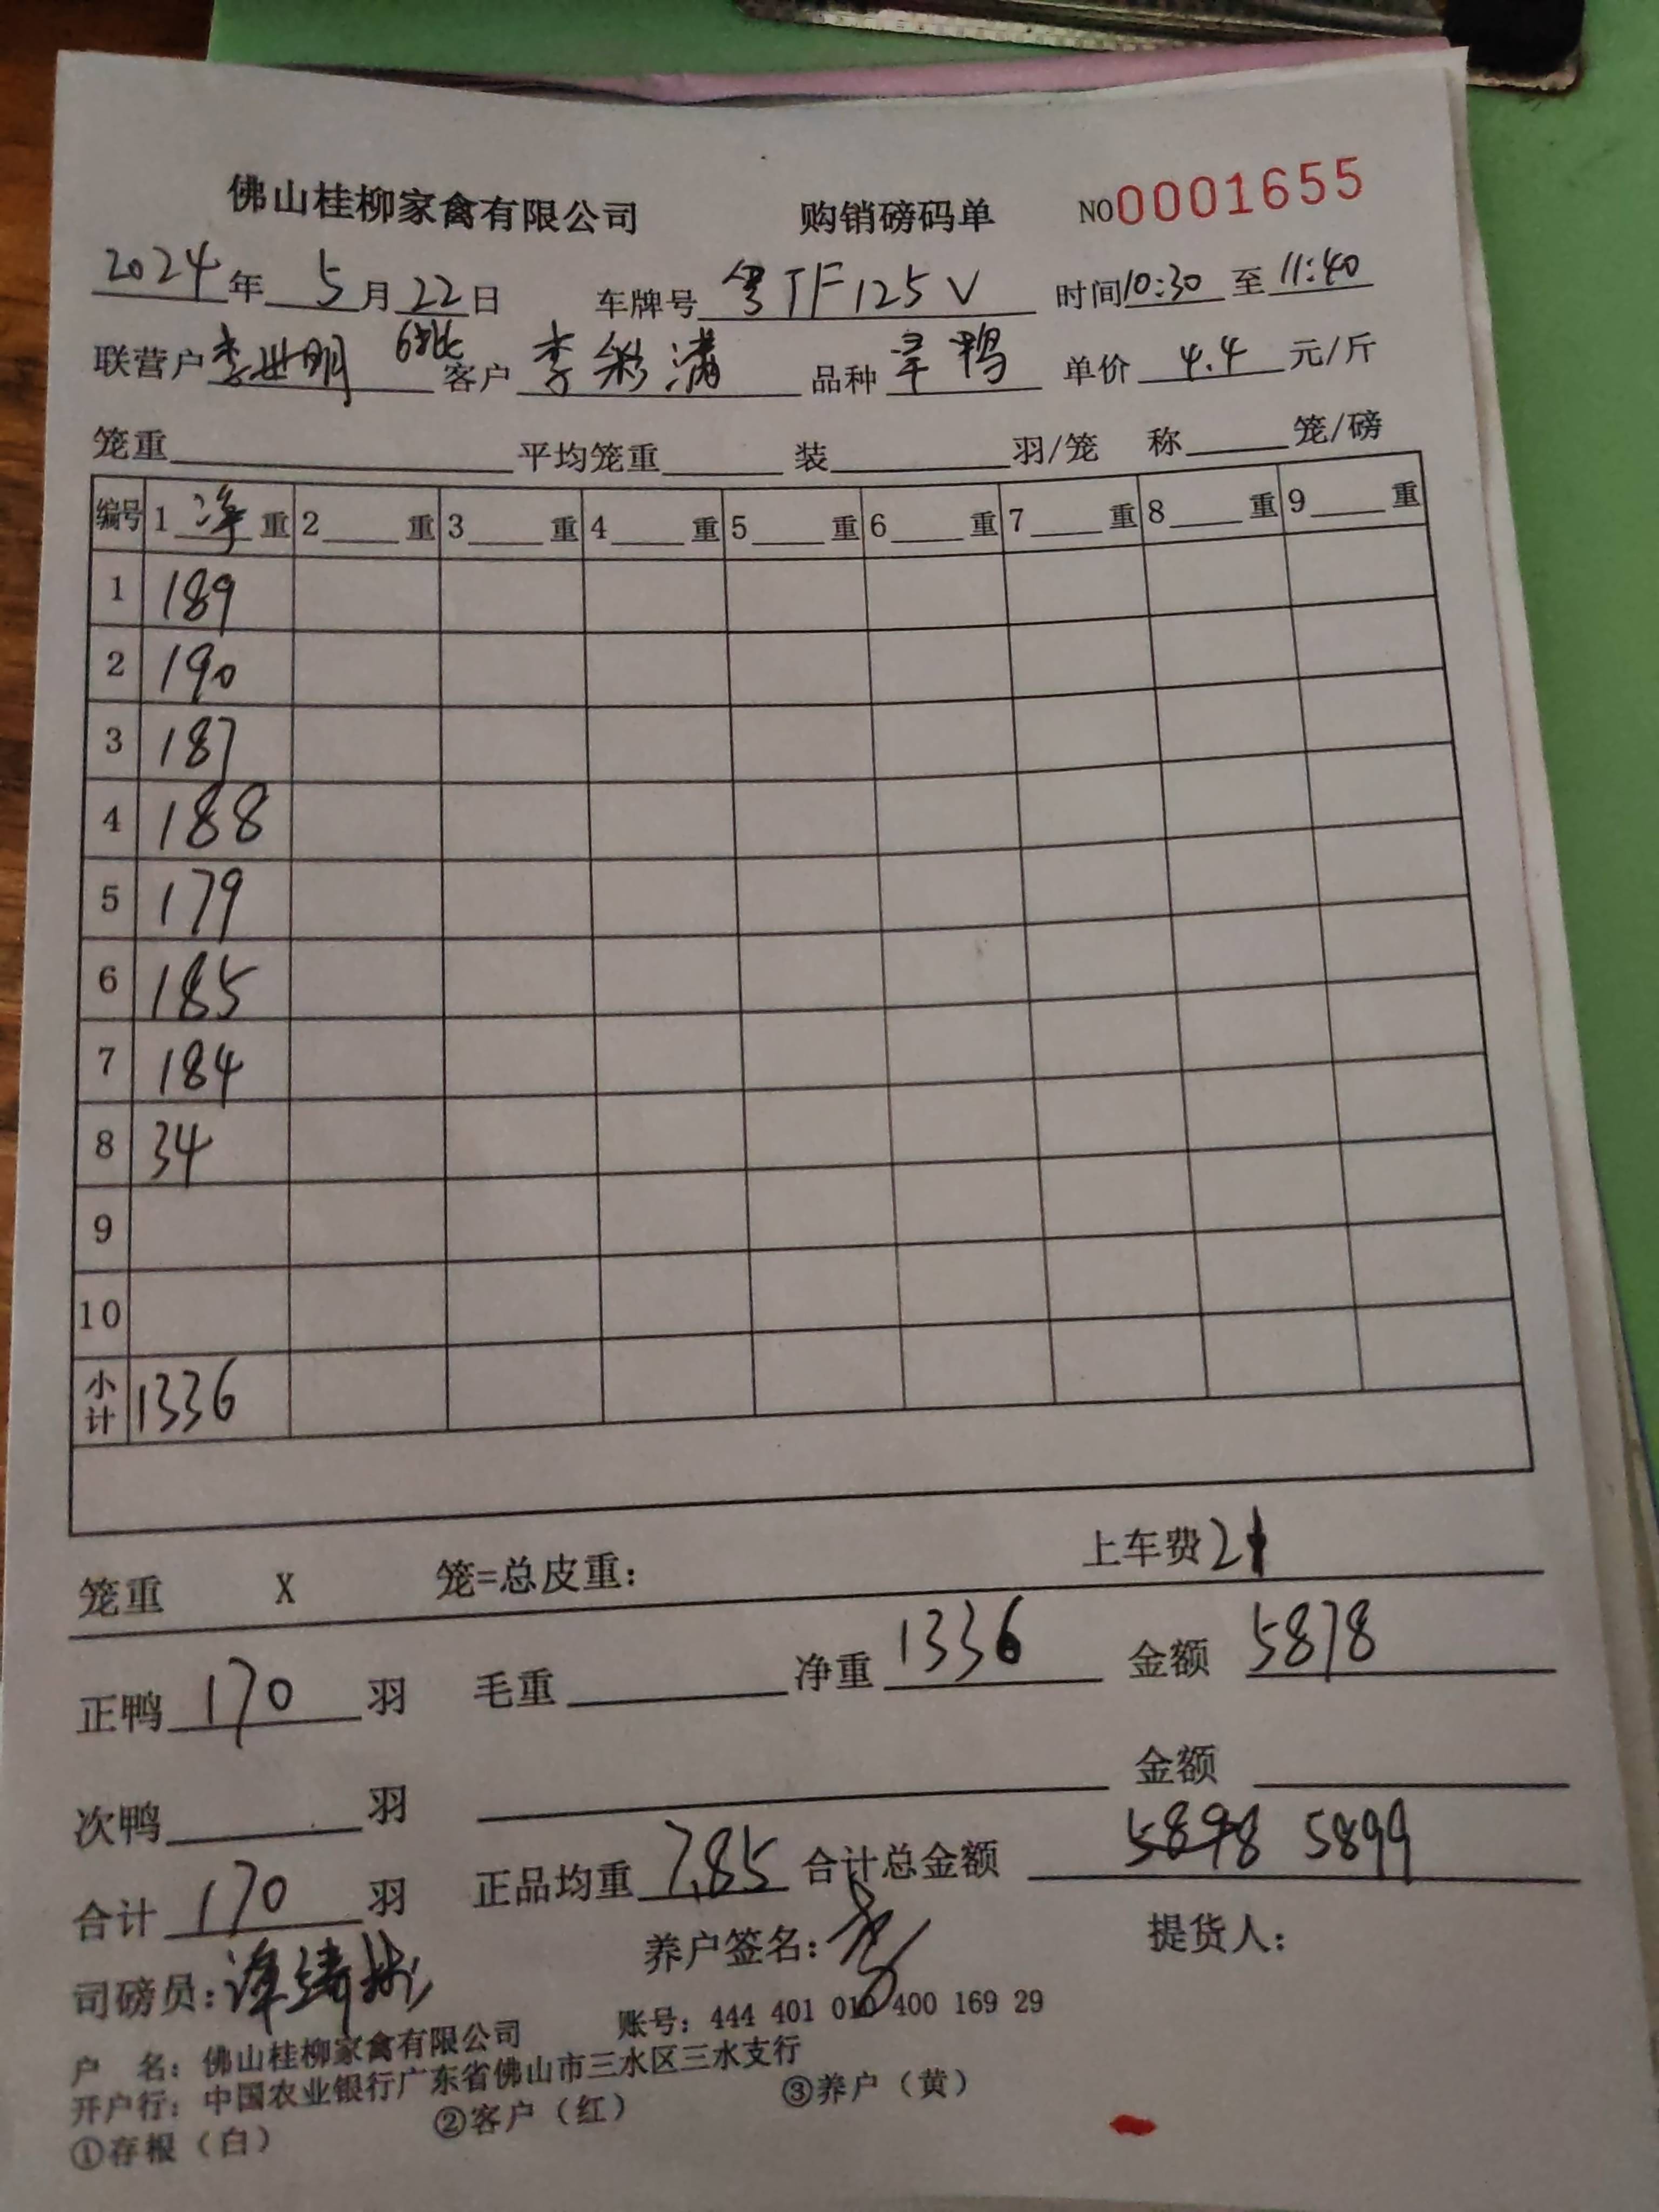 佛山桂柳家禽有限公司 购销磅码单 NO0001655
2024年 5月22日 车牌号 粤TF125V 时间10:30 至 11:40
联营户 李世明 6批 客户 李彩满 品种 鸭 单价 4.4 元/斤
笼重 平均笼重 装 羽/笼 称 笼/磅
编号 1 净 重 2 重 3 重 4 重 5 重 6 重 7 重 8 重 9 重
1 189
2 190
3 187
4 188
5 179
6 185
7 184
8 34
9
10
小计 1336
笼重 X 笼=总皮重: 上车费21
正鸭 170 羽 毛重 净重 1336 金额 5878
次鸭 羽 金额
合计 170 羽 正品均重 7.85 合计总金额 5898 5899
司磅员: 养户签名: 提货人:
户 名: 佛山桂柳家禽有限公司 账号: 444 401 010 400 169 29
开户行: 中国农业银行广东省佛山市三水区三水支行
①存根（白） ②客户（红） ③养户（黄）